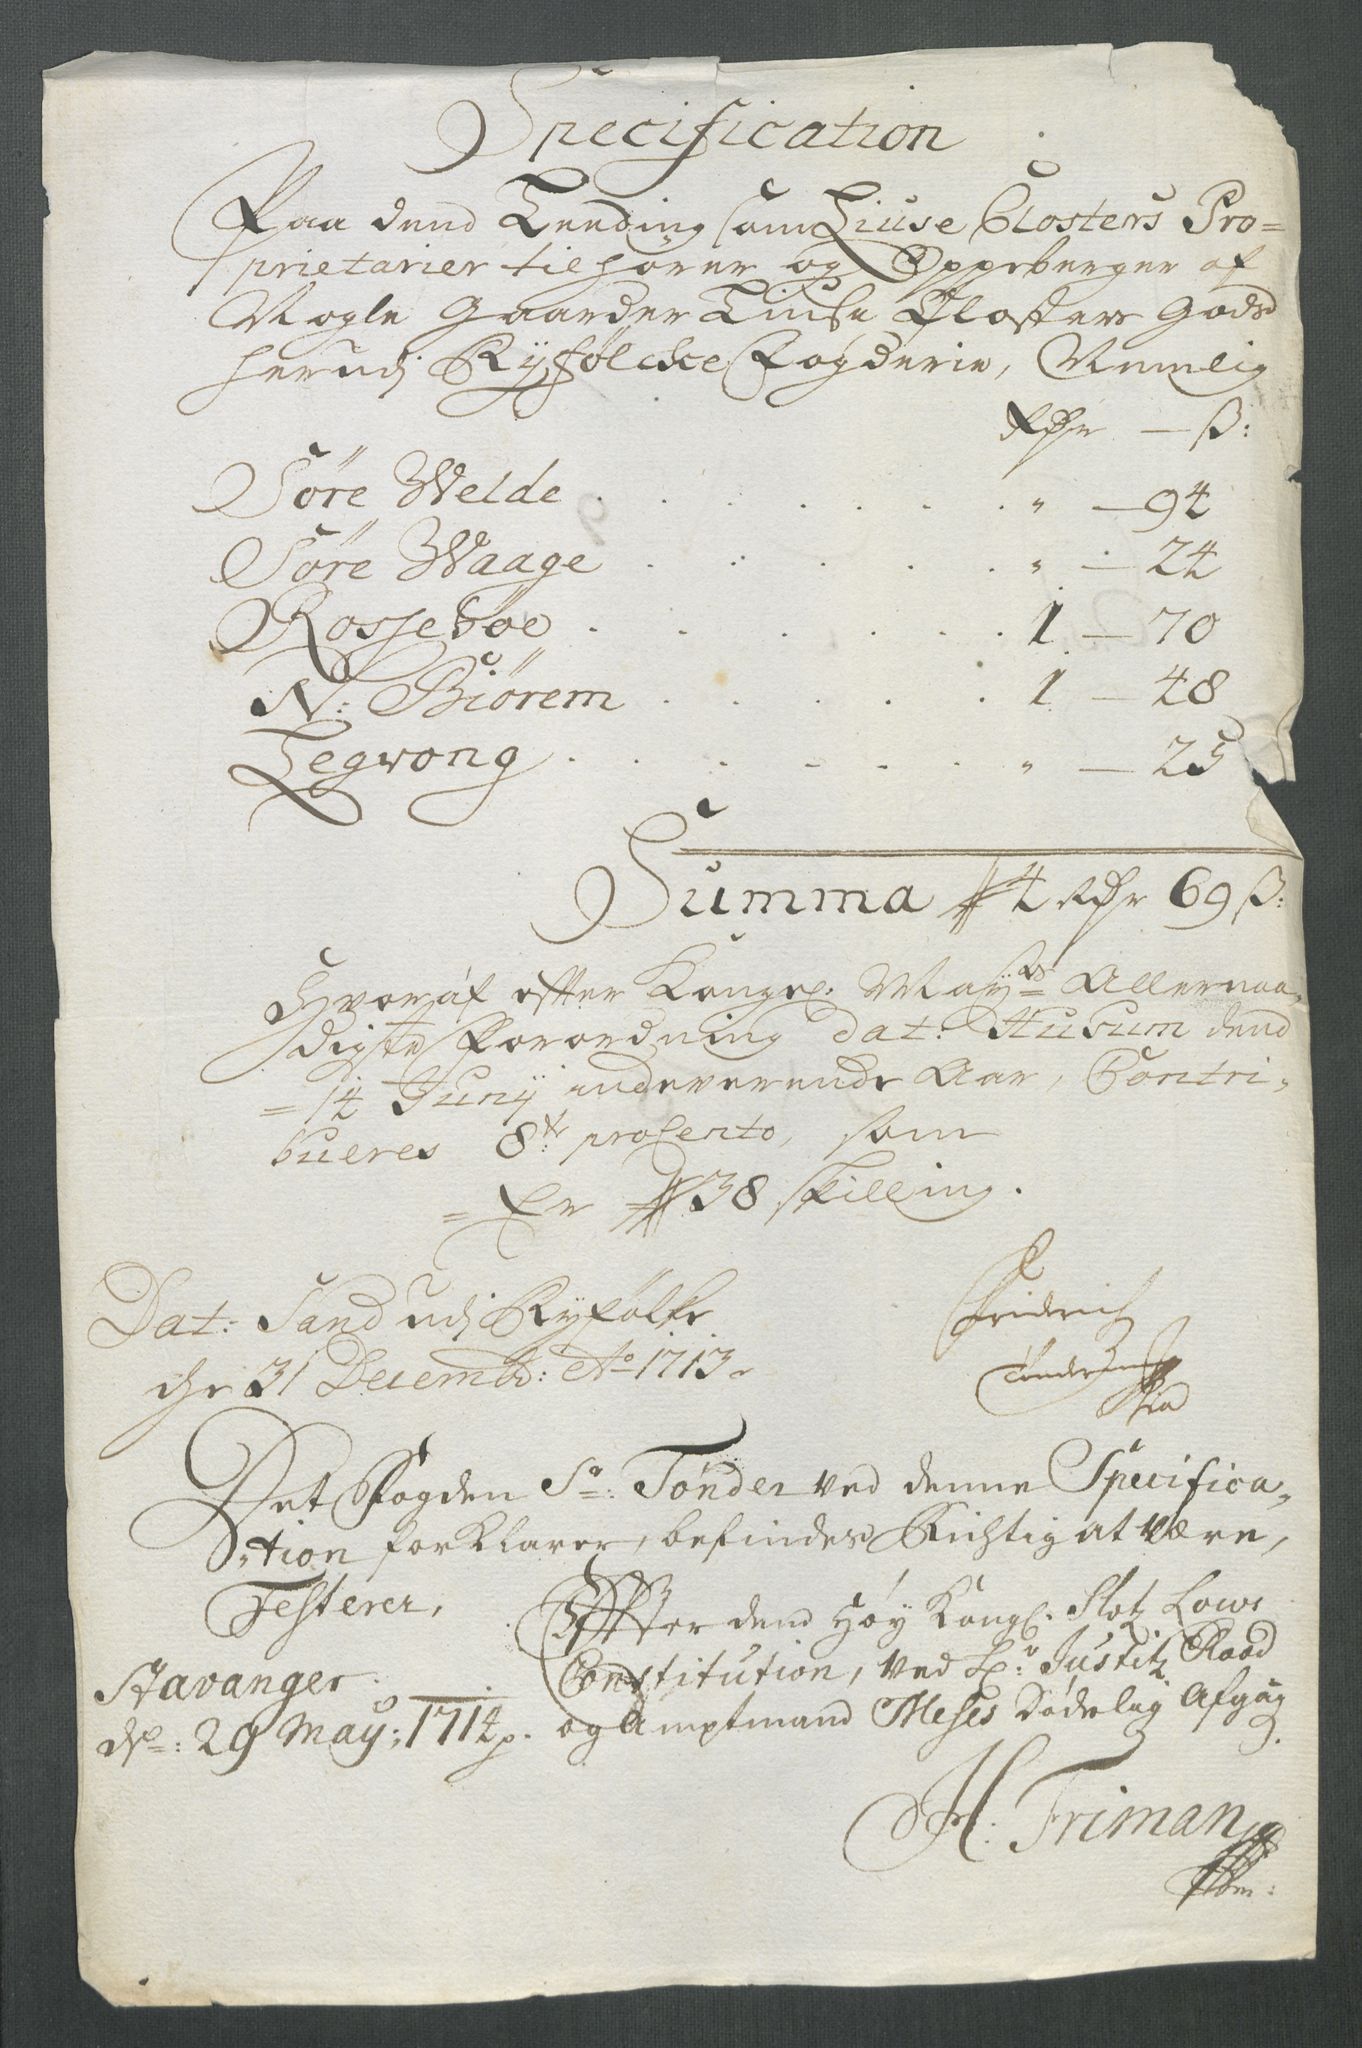 Specification
Paa dend Tending som Liuse Closters Pro=
prietarier tilhører og Oppeberger af
Nogle Gaarder Liuse Closters Gods
herudj Ryfølcke Fogderie, Nemlig
Rdr — ß:
Søre Welde . . . . . . . „ — 94
Søre Waage . . . . . . „ — 24
Rossebøe . . . . . . . 1 — 70
N: Biørem . . . . . 1 — 48
Legvong . . . . . . . „ — 25
Summa 4 Rdr 69 ß:
Hvoraf efter Kongl. Mayts Allernaa=
digste Forordning dat: Husum dend
= 14 Juny indeverende Aar, Contri=
bueres 8te procento, som
= Er 38 skilling.
Dat: Sand udj Ryfølke
de 31 Decembr: Ao 1713
Fridrich
Tønder
Det Fogden Sr: Tønder ved denne Specifica=
=tion forklarer, befindes Richtig at være,
Testerer,
Effter dend Høy Kongl. Slotz Lows
Constitution, ved Sr. Justitz Raad
og Amptmand Meses Dødelig Afgang
Stavanger
dn: 29 May: 1714
H: Friman